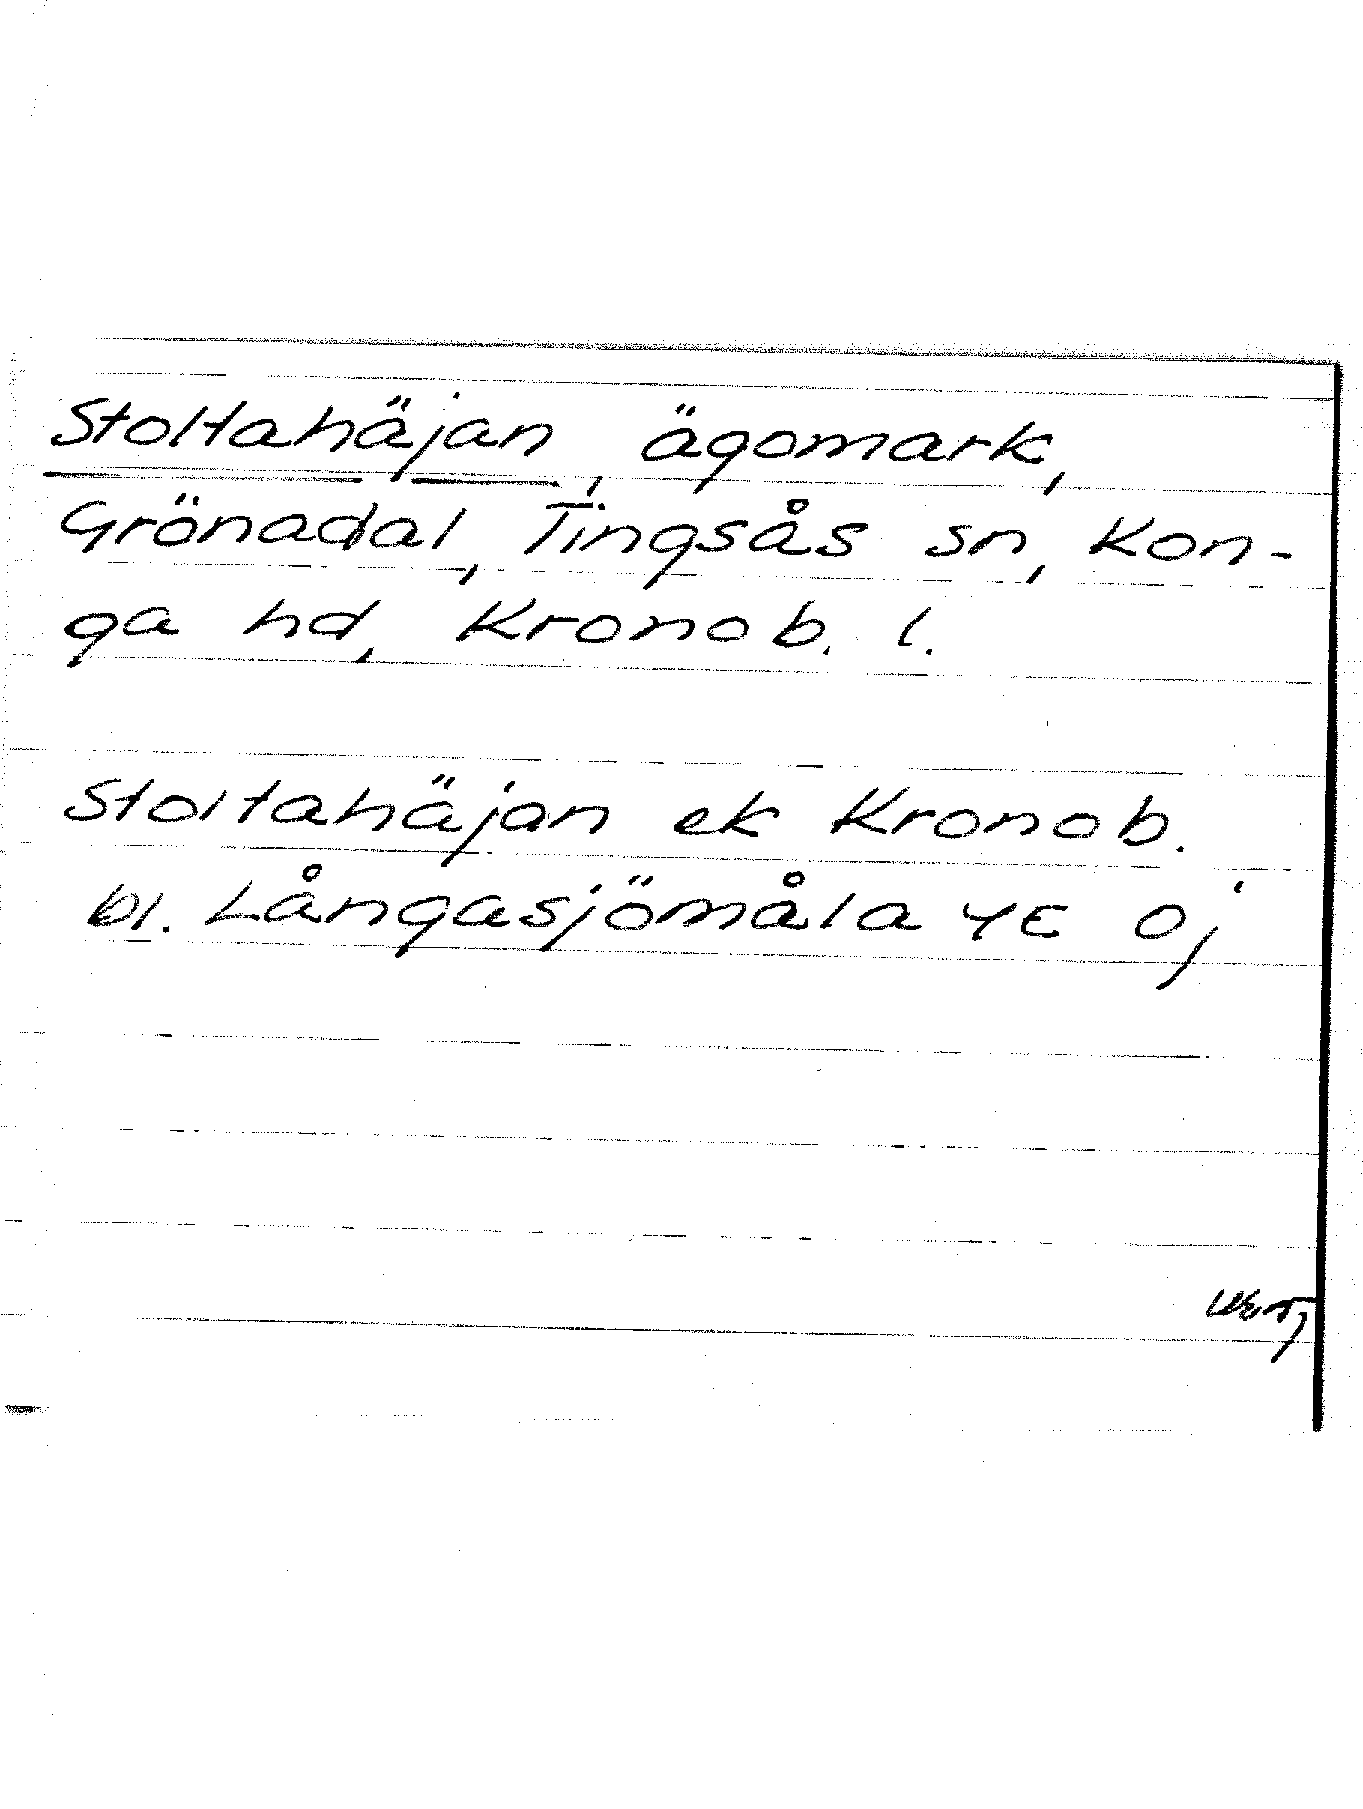 Stoltahäjan, ägomark,
Grönadal, Tingsås sn, Kon-
ga hd, Kronob. l.
Stoltahäjan ek Kronob.
bl. Långasjömåla 4E 0j